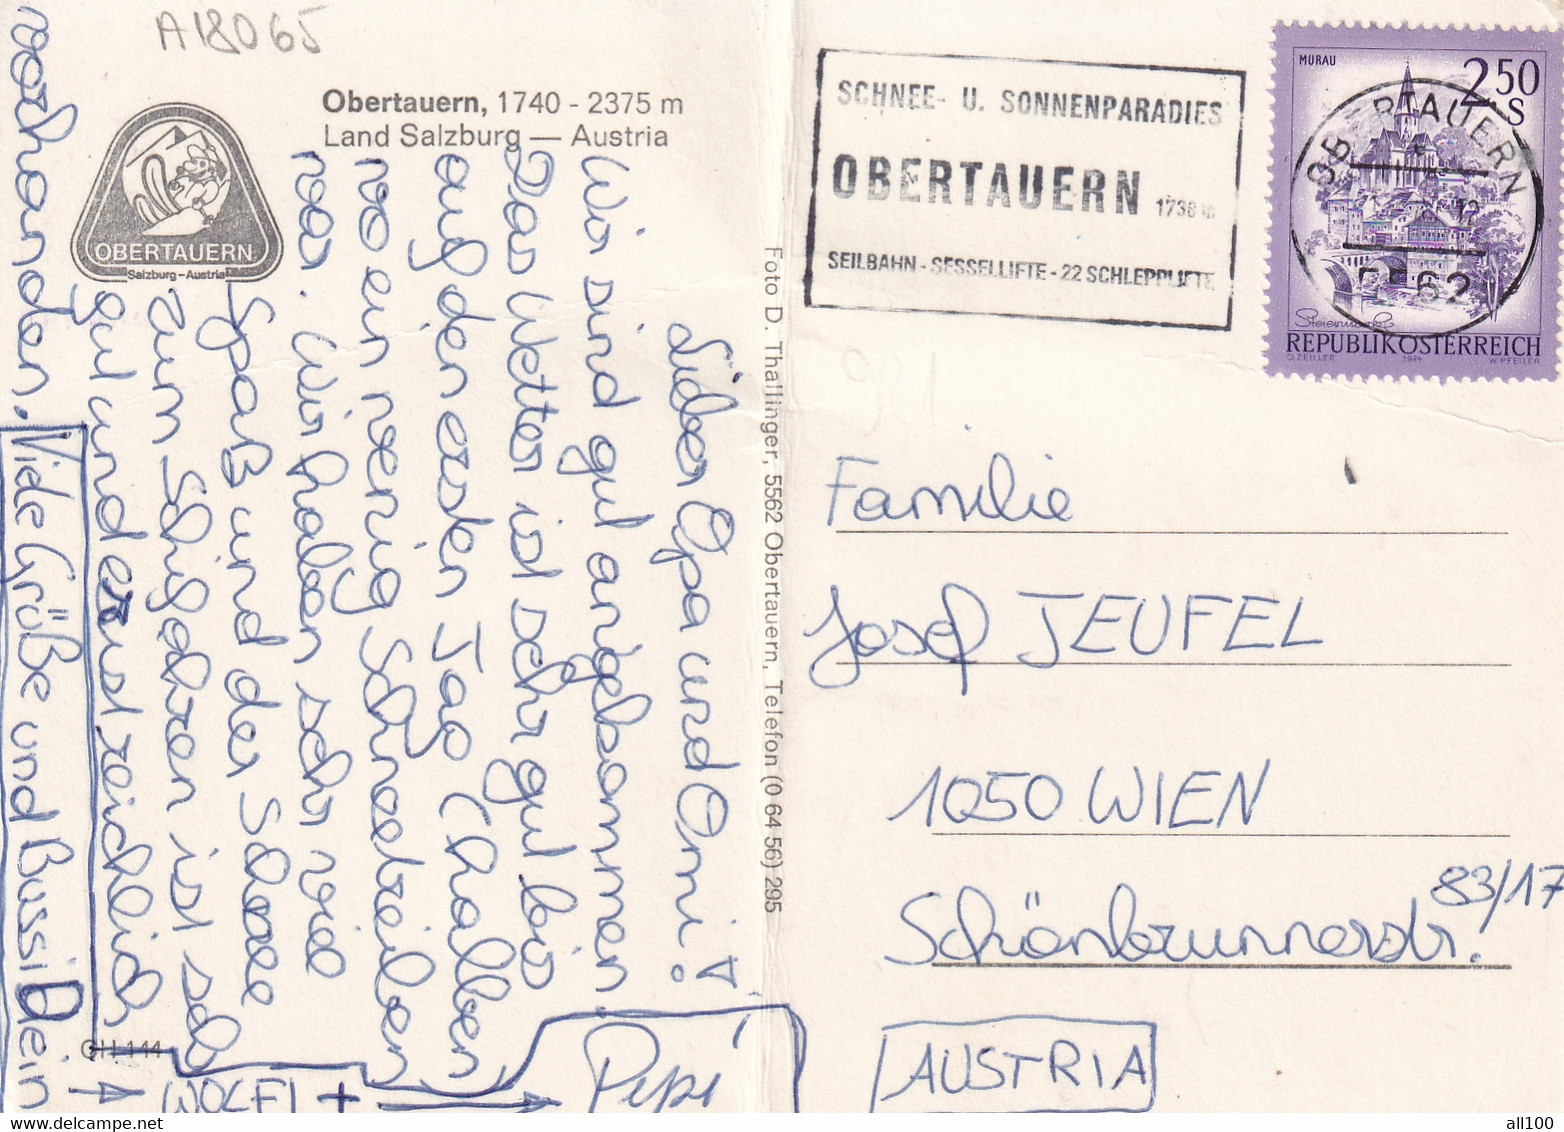 A18065
Obertauern, 1740 - 2375 m
Land Salzburg — Austria
OBERTAUERN
Salzburg-Austria
Lieber Opa und Omi!
Wir sind gut angekommen.
Das Wetter ist sehr gut bis
auf den ersten Tag (halben
wo ein wenig Schneetreiben
war. Wir haben sehr viel
Spaß und der Schnee
zum Schifahren ist seh
gut und
ausreichlich
vorhanden. Viele Grüße und Bussi Dein
WOLFI + Pepi
GH 144
Foto D. Thallinger, 5562 Obertauern, Telefon (0 64 56) 295
SCHNEE- U. SONNENPARADIES
OBERTAUERN 1738 m
SEILBAHN - SESSELLIFTE - 22 SCHLEPPLIFTE
MURAU
2.50
S
OBERTAUERN
5562
Steiermark
REPUBLIK ÖSTERREICH
O. ZEILLER 1974 W. PFEILER
Familie
Josef TEUFEL
1050 WIEN
Schönbrunnerstr. 83/17
AUSTRIA
delcampe.net
all100